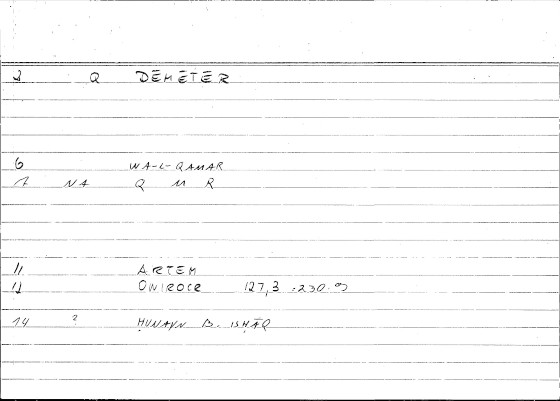 2 Q DĒMĒTĒR
6 WA-L-QAMAR
7 NA Q M R
11 ARTEM
12 ONIROCR 127,3 :230.9
14 ? ḤUNAYN B. ISḤĀQ